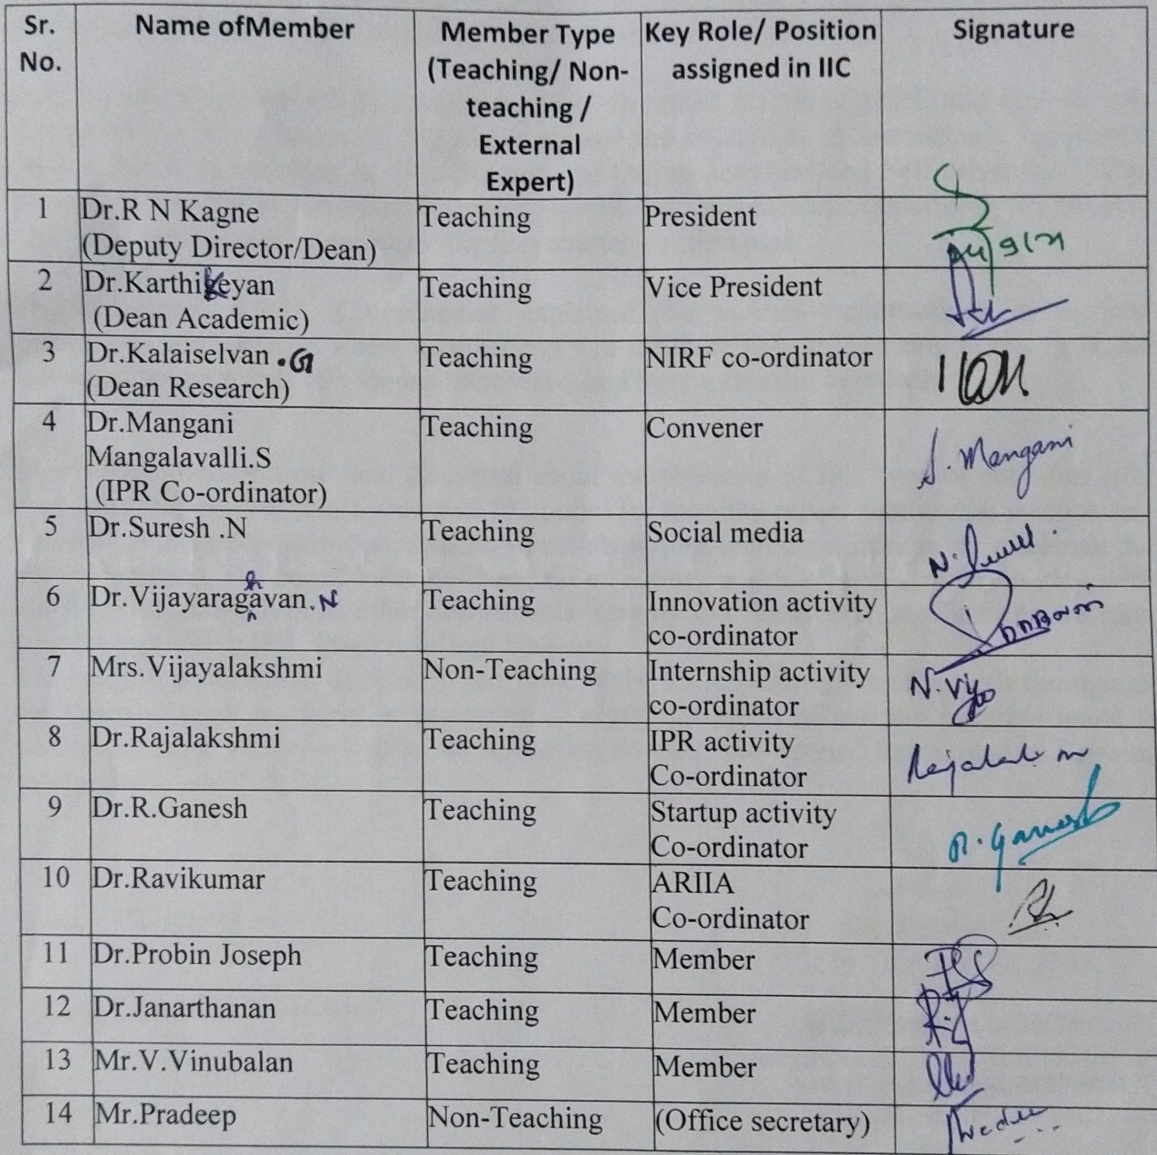 Sr. No. Name ofMember Member Type (Teaching/ Non-teaching / External Expert) Key Role/ Position assigned in IIC Signature
1 Dr.R N Kagne Teaching President
(Deputy Director/Dean)
2 Dr.Karthikeyan Teaching Vice President
(Dean Academic)
3 Dr.Kalaiselvan .G Teaching NIRF co-ordinator
(Dean Research)
4 Dr.Mangani Teaching Convener
Mangalavalli.S S. Mangani
(IPR Co-ordinator)
5 Dr.Suresh .N Teaching Social media
6 Dr.Vijayaraghavan.N Teaching Innovation activity
co-ordinator
7 Mrs.Vijayalakshmi Non-Teaching Internship activity
co-ordinator
8 Dr.Rajalakshmi Teaching IPR activity
Co-ordinator
9 Dr.R.Ganesh Teaching Startup activity
Co-ordinator R. Ganesh
10 Dr.Ravikumar Teaching ARIIA
Co-ordinator
11 Dr.Probin Joseph Teaching Member
12 Dr.Janarthanan Teaching Member
13 Mr.V.Vinubalan Teaching Member
14 Mr.Pradeep Non-Teaching (Office secretary)